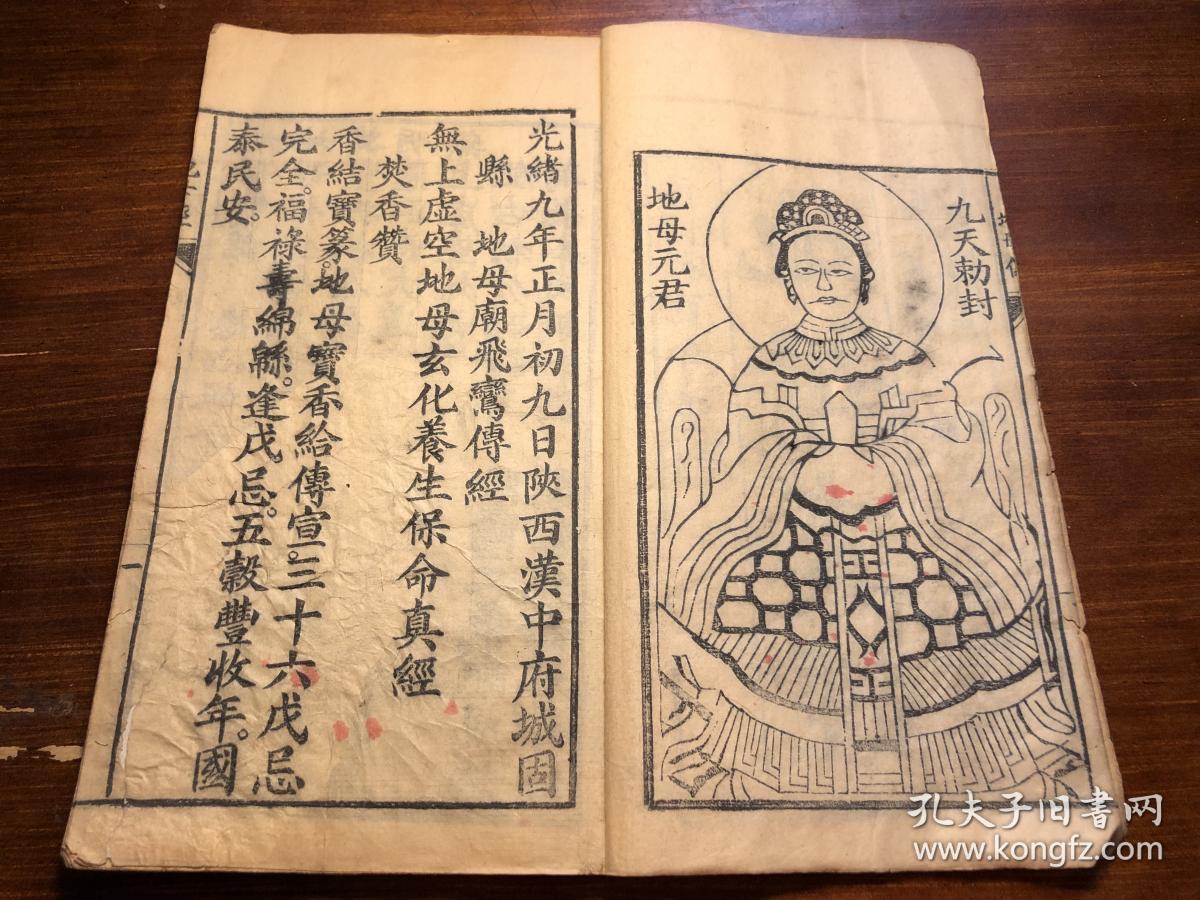 九天勅封
地母元君
光緒九年正月初九日陝西漢中府城固
縣 地母廟飛鸞傳經
無上虛空地母玄化養生保命真經
焚香贊
香結寶篆。地母寶香給傳宣。三十六戊忌
完全。福祿壽綿緜。逢戊忌。五穀豐收年。國
泰民安。
孔夫子旧书网
www.kongfz.com